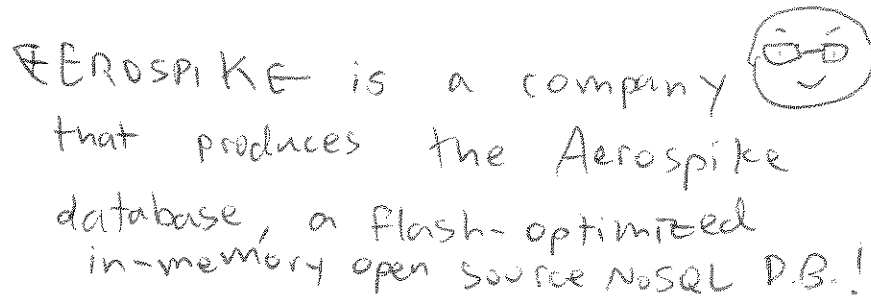 EEROSPIKE is a company
that produces the Aerospike
database, a flash-optimized
in-memory open source NoSQL D.B.!